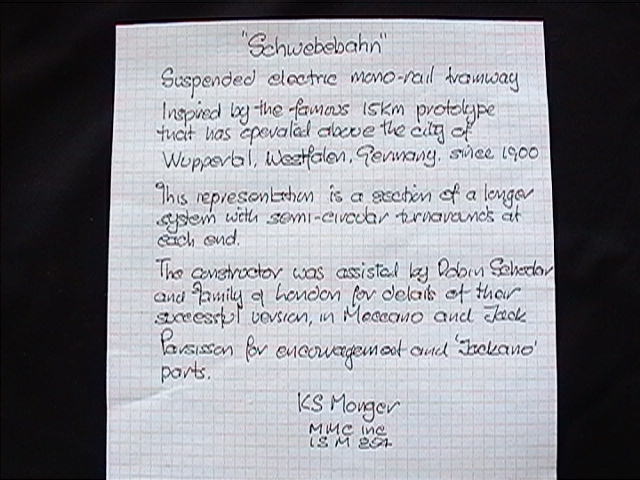 "Schwebebahn"
Suspended electric mono-rail tramway
Inspired by the famous 15km prototype
that has operated above the city of
Wuppertal, Westfalen, Germany. since 1900
This representation is a section of a longer
system with semi-circular turnarounds at
each end.
The constructor was assisted by Robin Schoolar
and family of London for details of their
successful version, in Meccano and Jack
Parsisson for encouragement and 'Jackano'
parts.
KS Monger
MMC Inc
ISM